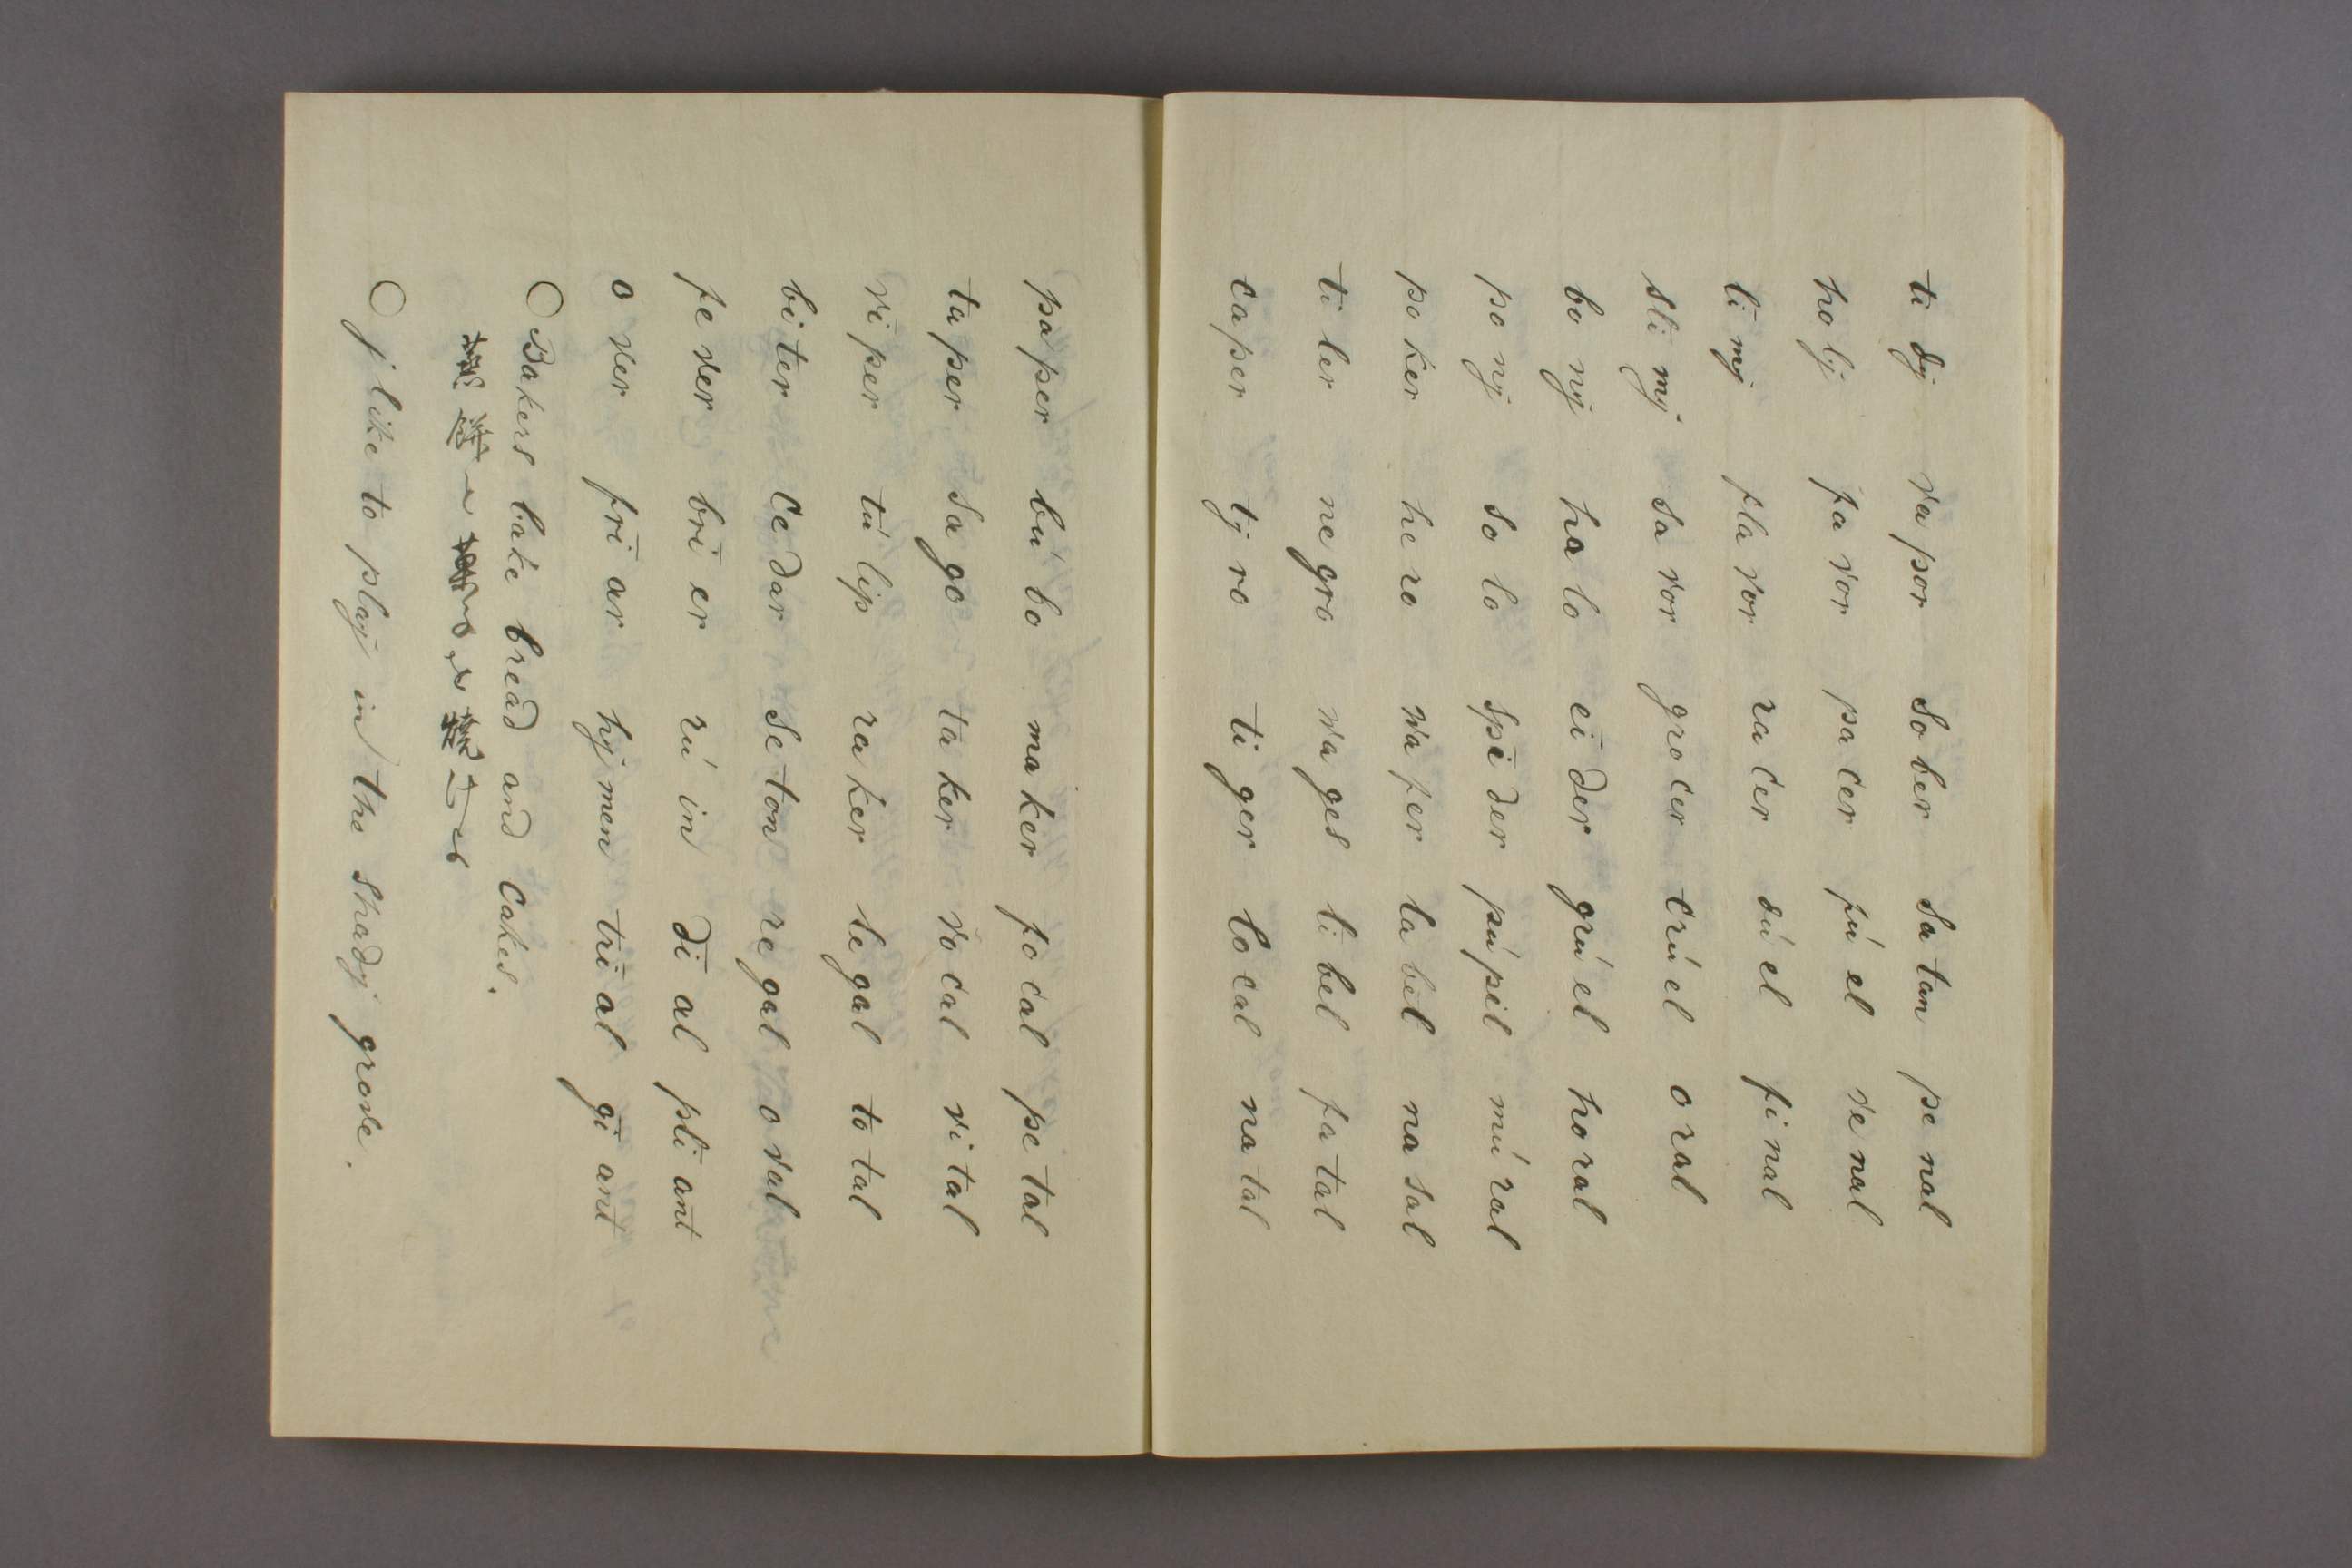 ti dy va por So ber Sa tan pe nal
ho ly fa vor pa cer fú el ve nal
li my fla vor ra cer dú el fi nal
sli my sa vor gro cer crú el o ral
bo ny ha lo ei der grú el ho ral
po ny so lo spi der pú pil mú ral
po ker he ro wa fer la bel na sal
ti ler ne gro wa ges li bel fa tal
ca per ty ro ti ger lo cal na tal
pa per bú bo ma ker fo cal pe tal
ta per sa go ta ker vo cal vi tal
vi per tú lip ra ker le gal to tal
bi ter Ce dar se ton re gal o val
fe ver bri er rú in di al pli ant
o ver fri ar hy men tri al gi ant
Bakers bake bread and Cakes.
j like to play in the shady grove.